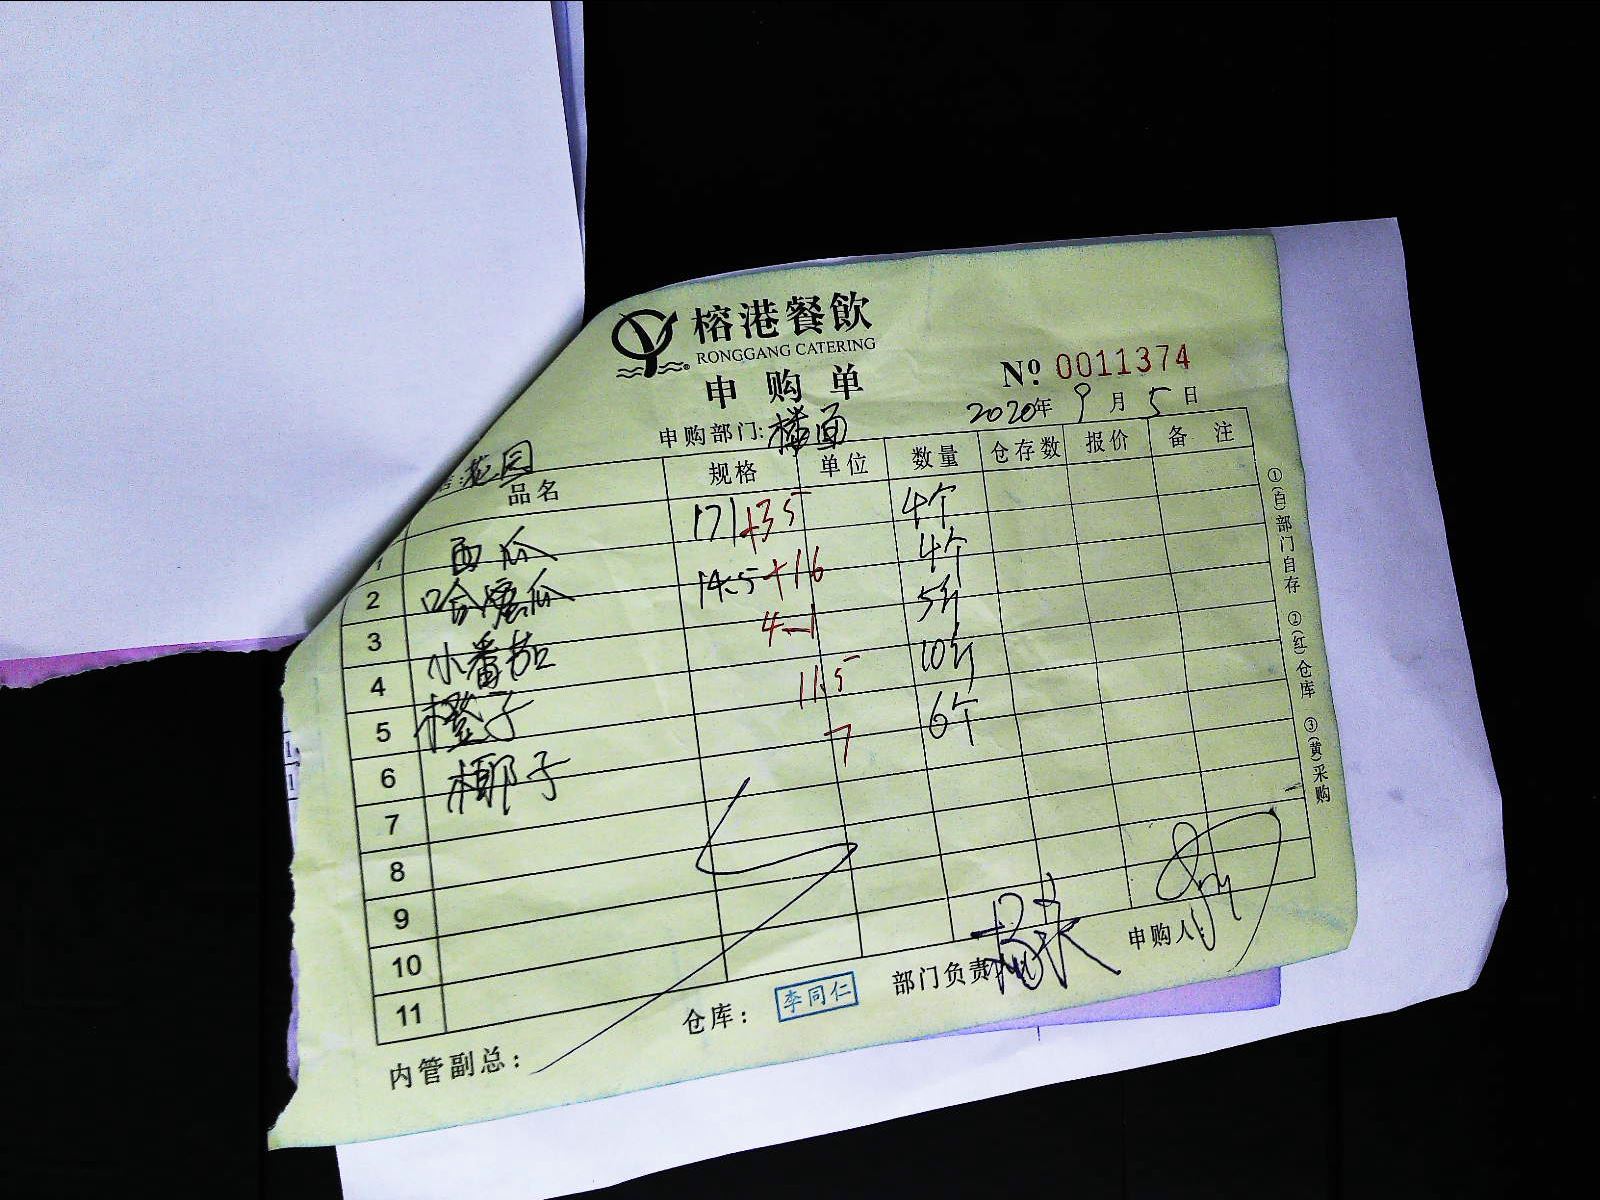 榕港餐飲
RONGGANG CATERING
申购单
Nº 0011374
申购部门:楼面
2020年9月5日
花园
品名 规格 单位 数量 仓存数 报价 备注
1 西瓜 171+35 4个
2 哈蜜瓜 14.5+16 4个
3 小番茄 4-1 5斤
4 橙子 11.5 10斤
5 椰子 7 6个
6
7
8
9
10
11
①(白)部门自存 ②(红)仓库 ③(黄)采购
内管副总: 仓库: 李同仁 部门负责 申购人: